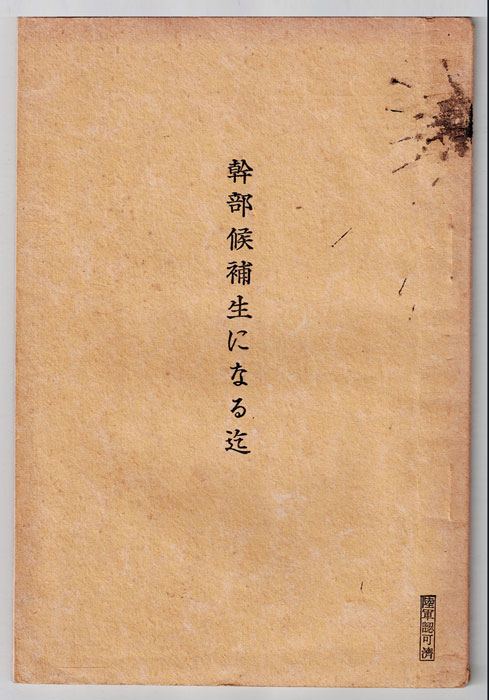 幹部候補生になる迄
陸軍認可済